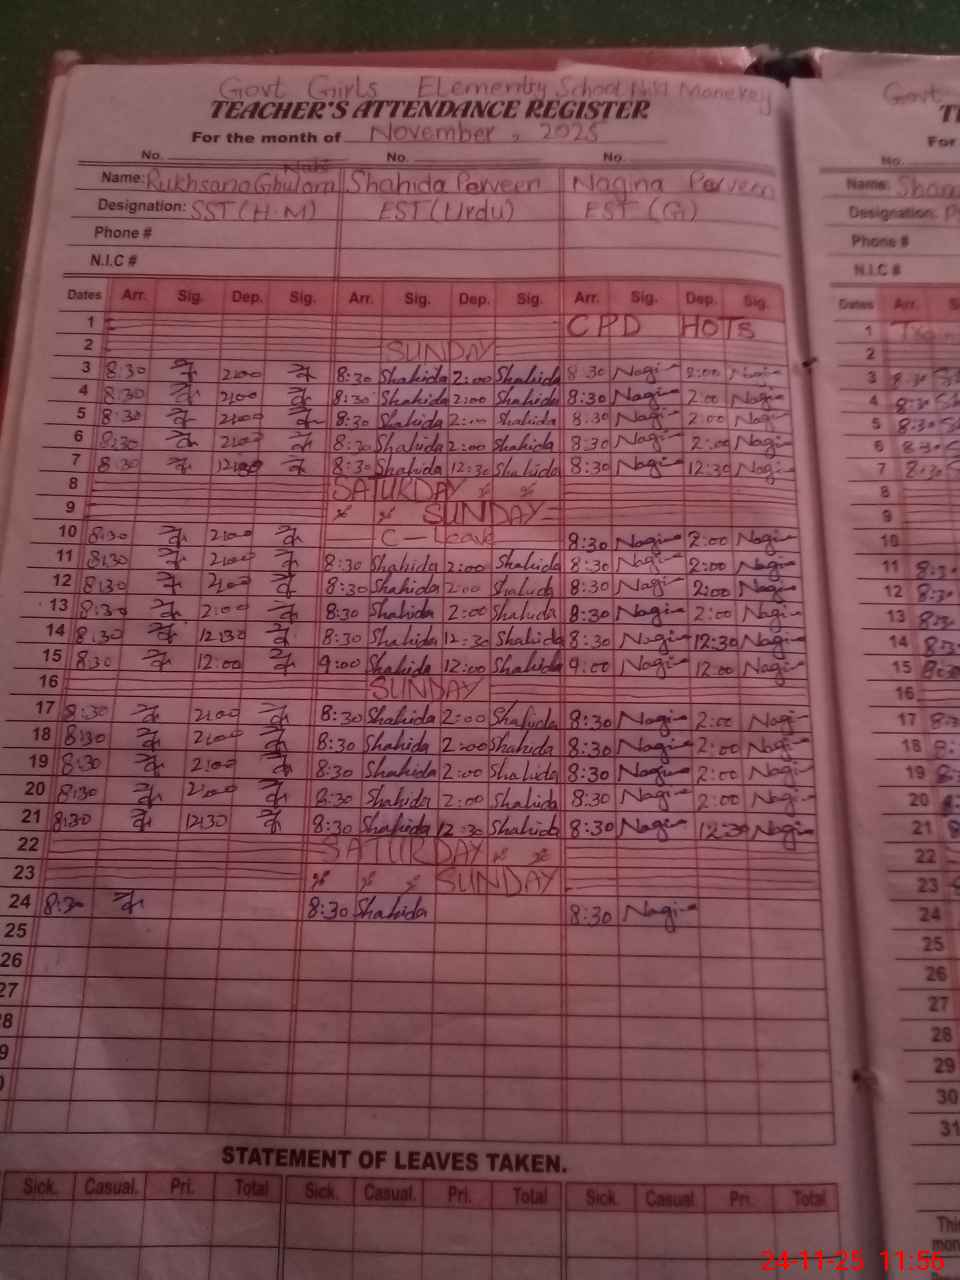 Govt Girls Elementry School No.1 Manekey
TEACHER'S ATTENDANCE REGISTER
For the month of November, 2025
No. No. No.
Name: Rukhsana Ghulam Nabi Shahida Perveen Nagina Perveen
Designation: SST (H.M) EST (Urdu) EST (G)
Phone #
N.I.C #
Dates Arr. Sig. Dep. Sig. Arr. Sig. Dep. Sig. Arr. Sig. Dep. Sig.
1 CPD HOTS
2 SUNDAY
3 8:30 2:00 8:30 Shahida 2:00 Shahida 8:30 Nagi 2:00 Nagi
4 8:30 2:00 8:30 Shahida 2:00 Shahida 8:30 Nagi 2:00 Nagi
5 8:30 2:00 8:30 Shahida 2:00 Shahida 8:30 Nagi 2:00 Nagi
6 8:30 2:00 8:30 Shahida 2:00 Shahida 8:30 Nagi 2:00 Nagi
7 8:30 8:30 Shahida 12:30 Shahida 8:30 Nagi 12:30 Nagi
8 SATURDAY
9 SUNDAY
10 8:30 2:00 C-Leave 8:30 Nagi 2:00 Nagi
11 8:30 2:00 8:30 Shahida 2:00 Shahida 8:30 Nagi 2:00 Nagi
12 8:30 2:00 8:30 Shahida 2:00 Shahida 8:30 Nagi 2:00 Nagi
13 8:30 2:00 8:30 Shahida 2:00 Shahida 8:30 Nagi 2:00 Nagi
14 8:30 12:30 8:30 Shahida 12:30 Shahida 8:30 Nagi 12:30 Nagi
15 8:30 12:00 9:00 Shahida 12:00 Shahida 9:00 Nagi 12:00 Nagi
16 SUNDAY
17 8:30 2:00 8:30 Shahida 2:00 Shahida 8:30 Nagi 2:00 Nagi
18 8:30 2:00 8:30 Shahida 2:00 Shahida 8:30 Nagi 2:00 Nagi
19 8:30 2:00 8:30 Shahida 2:00 Shahida 8:30 Nagi 2:00 Nagi
20 8:30 2:00 8:30 Shahida 2:00 Shahida 8:30 Nagi 2:00 Nagi
21 8:30 12:30 8:30 Shahida 12:30 Shahida 8:30 Nagi 12:30 Nagi
22 SATURDAY
23 SUNDAY
24 8:30 8:30 Shahida 8:30 Nagi
25
26
27
8
9
STATEMENT OF LEAVES TAKEN.
Sick. Casual. Pri. Total Sick. Casual. Pri. Total Sick. Casual Pri. Total
Govt.
For
No.
Name:
Designation:
Phone #
N.I.C #
Dates Arr.
1
2
3 8:30
4 8:30
5 8:30
6 8:30
7 8:30
8
9
10
11 8:30
12 8:30
13 8:30
14 8:30
15 8:30
16
17
18
19
20
21
22
23
24
25
26
27
28
29
30
31
24-11-25 11:56